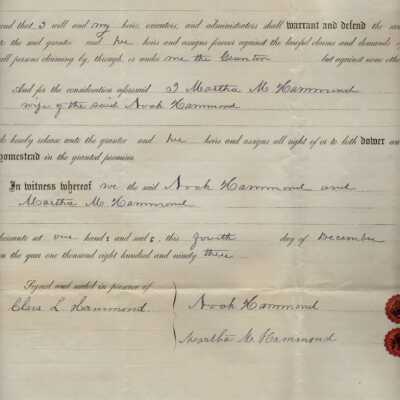 and that I will and my heirs, executors, and administrators shall warrant and defend the sam
to the said grantee and her heirs and assigns forever against the lawful claims and demands of
all persons claiming by, through, or under me the Grantor but against none othe
And for the consideration aforesaid I Martha M Hammond
wife of the said Noah Hammond
do hereby release unto the grantee and her heirs and assigns all right of or to both dower an
homestead in the granted premises.
In witness whereof we the said Noah Hammond and
Martha M. Hammond
hereunto set our hands and seals, this fourth day of December
in the year one thousand eight hundred and ninety three.
Signed and sealed in presence of
Clara L. Hammond. Noah Hammond
Martha M. Hammond